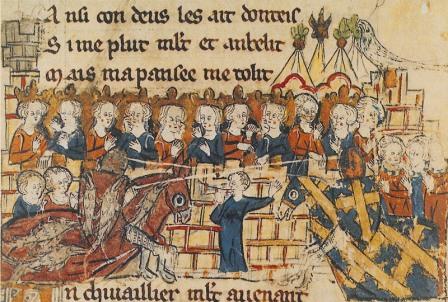 A nsi con deus les ait donteis
S i me plut mlt et anbelit
M ais ma pansee me tolit
n chiuaillier mlt auenant